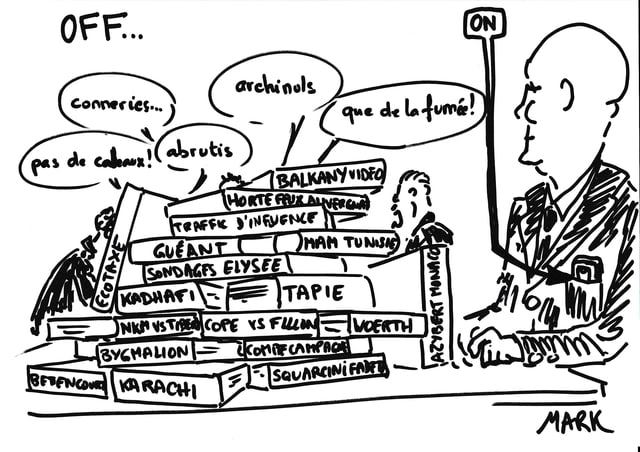 OFF...
ON
conneries...
archinuls
que de la fumée!
pas de cadeaux!
abrutis
BALKANY VIDEO
HORTEFEUX AUVERGNAT
TRAFFIC D'INFLUENCE
ECOTAXE
GUÉANT
MAM TUNISIE
SONDAGES ELYSEE
KADHAFI
TAPIE
AZYBERT MONACO
NKM VS TIBERI
COPE VS FILLON
WOERTH
BYGMALION
COMPTE CAMPAGNE
BETENCOURT
KARACHI
SQUARCINI FADET
MARK